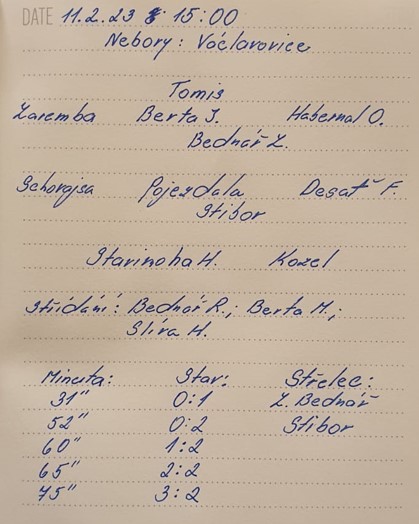 DATE 11.2.23 15:00
Nebory : Václavovice
Tomis
Zaremba Berta J. Habernal O.
Bednář Z.
Sehorajsa Pojezdala Desať F.
Stibor
Starinoha H. Kozel
Střídání: Bednář R.; Berta M.;
Slíva H.
Minuta: Stav: Střelec:
31" 0:1 Z. Bednář
52" 0:2 Stibor
60" 1:2
65" 2:2
75" 3:2